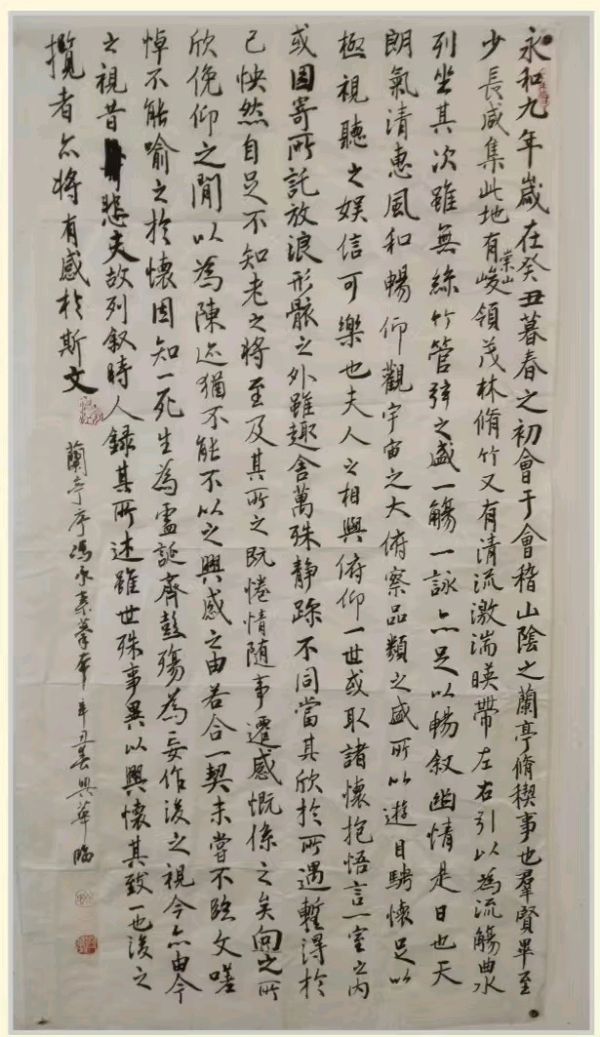 永和九年歲在癸丑暮春之初會于會稽山陰之蘭亭脩稧事也羣賢畢至
少長咸集此地有崇山峻領茂林脩竹又有清流激湍暎帶左右引以為流觴曲水
列坐其次雖無絲竹管弦之盛一觴一詠亦足以暢叙幽情是日也天
朗氣清惠風和暢仰觀宇宙之大俯察品類之盛所以遊目騁懷足以
極視聽之娛信可樂也夫人之相與俯仰一世或取諸懷抱悟言一室之內
或因寄所託放浪形骸之外雖趣舍萬殊静躁不同當其欣於所遇暫得於
己怏然自足不知老之將至及其所之既惓情隨事遷感慨係之矣向之所
欣俛仰之閒以為陳迹猶不能不以之興感之由若合一契未嘗不臨文嗟
悼不能喻之於懷固知一死生為虛誕齊彭殤為妄作後之視今亦由今
之視昔悲夫故列叙時人録其所述雖世殊事異以興懷其致一也後之
攬者亦將有感於斯文
蘭亭序馮承素摹本辛丑春興華臨